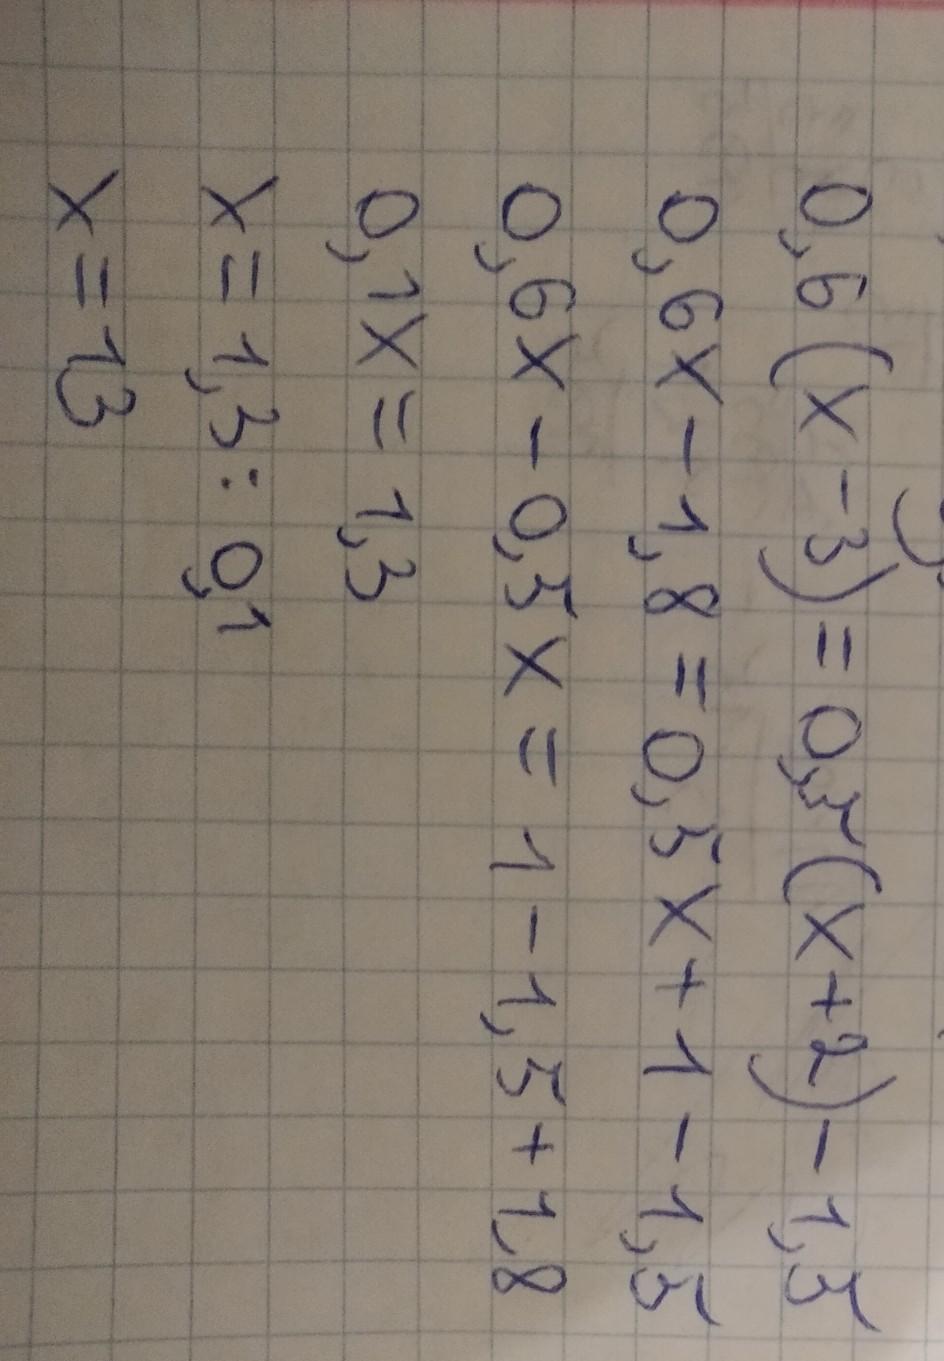 0,6(x-3)=0,5(x+2)-1,5
0,6x-1,8=0,5x+1-1,5
0,6x-0,5x=1-1,5+1,8
0,1x=1,3
x=1,3:0,1
x=13